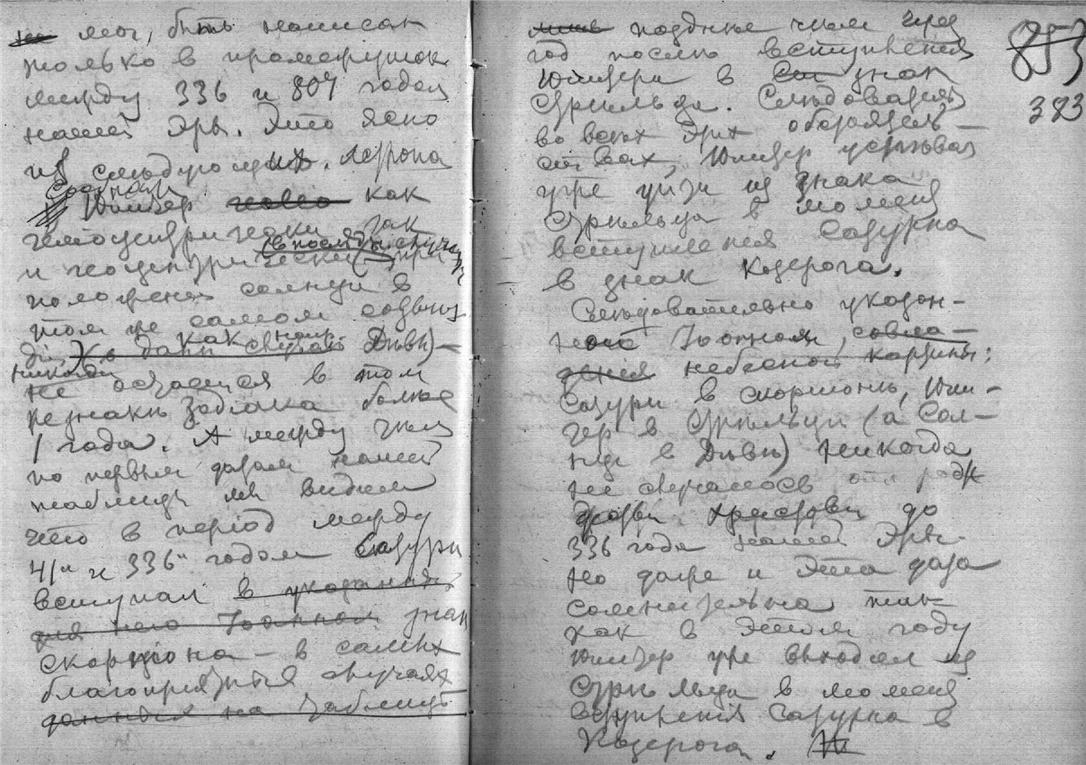 мог, быть написан
только в промежуток
между 336 и 807 годом
нашей эры. Это ясно
из следующих. Астроно
Юпитер какъ
гелиоцентрически так
и геоцентрически (в последн. случаѣ при
положенiи солнца в
том же самом созвѣз
дiи, как напр. Дѣвы) —
никогда
не остается в том
же знакѣ Зодiака болѣе
1 года. А между тѣм
по первым датам нашей
таблицы мы видим
что в перiод между
41м и 336м годом Сатурн
вступал в указанный
для него Iоанном знак
скорпiона — в самых
благопрiятных случаях
данных на таблицѣ
позднѣе чѣм чрез
год послѣ вступленiя
Юпитера в знак
Стрѣльца. Слѣдовательно
во всѣх этих обстоятель—
ствах, Юпитер успѣвал
уже уйти из знака
Стрѣльца в момент
вступленiя Сатурна
в знак Козерога.
Слѣдовательно указан—
ное Iоанном, совпа—
денiя небесной картины:
Сатурн в скорпiонѣ, Юпи—
тер в Стрѣльцѣ (а Сол—
нце в Дѣвѣ) никогда
не случалось от рож
Христова до
336 года нашей эры.
Но даже и эта дата
сомнительна так
как в этом году
Юпитер уже выходил из
Стрѣльца в момент
вступленiя Сатурна в
Козерога.
853
383